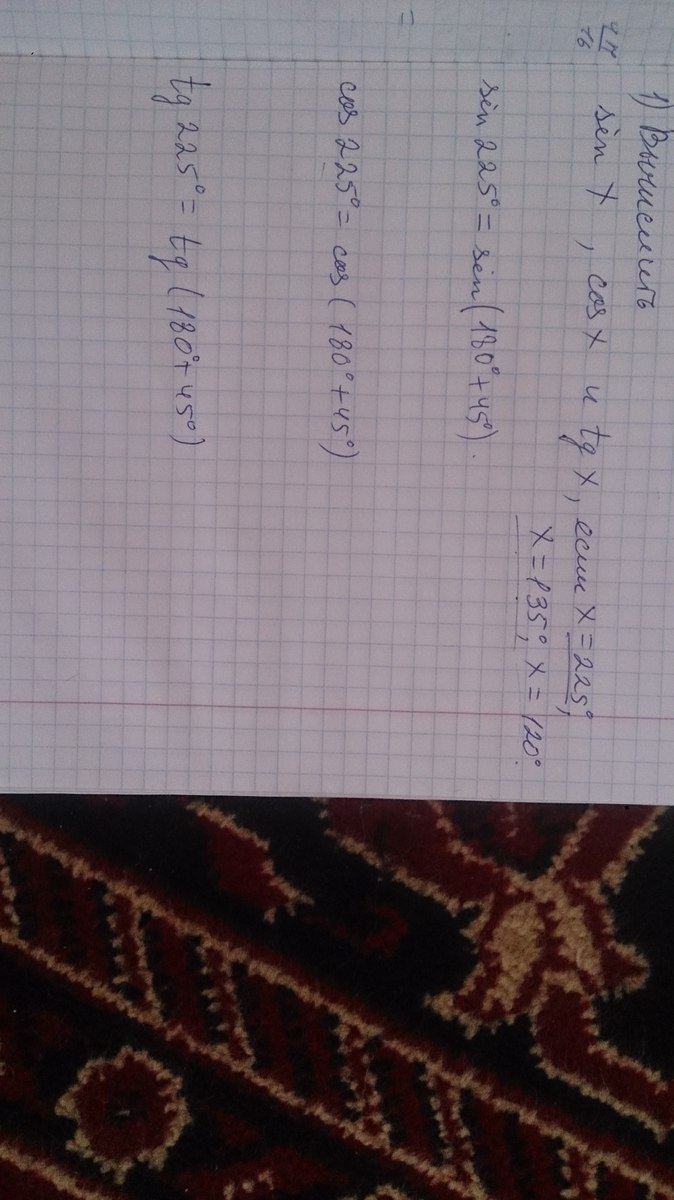 1) Вычислить
sin x, cos x и tg x, если x = 225°,
x = 135°, x = 120°.
sin 225° = sin(180° + 45°).
cos 225° = cos(180° + 45°)
=
tg 225° = tg(180° + 45°)